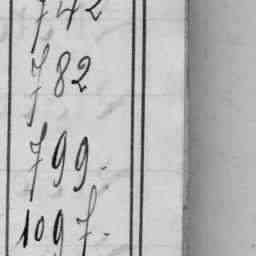 742
782
799.
1097.